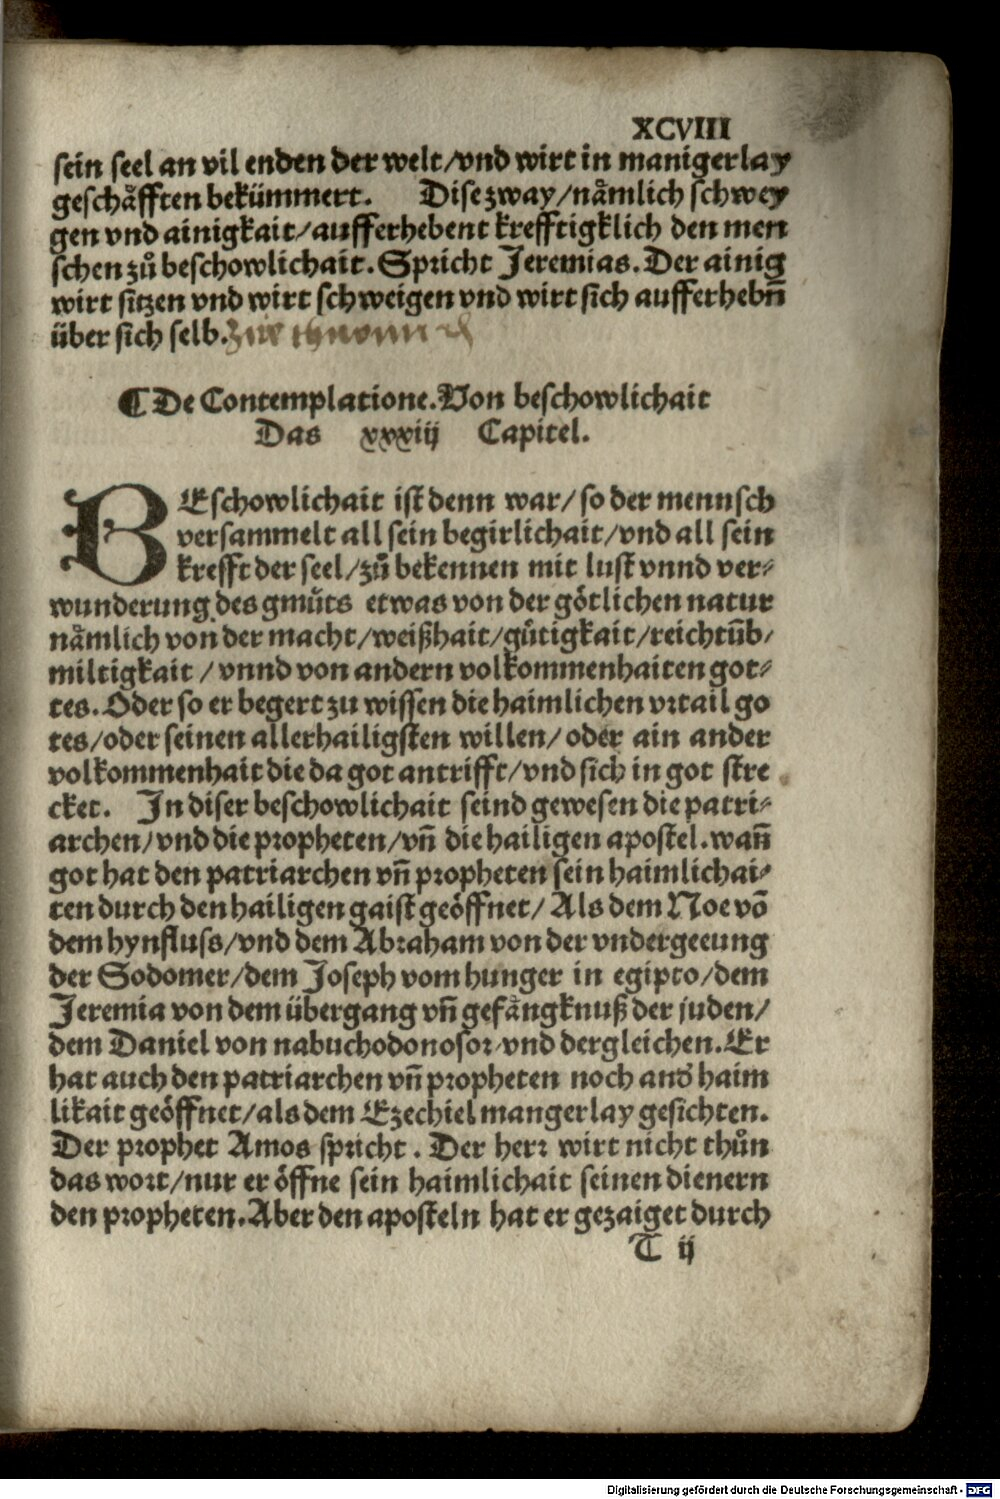 XCVIII
sein seel an vil enden der welt/vnd wirt in manigerlay
geschåfften bekümmert. Dise zway/nåmlich schwey
gen vnd ainigkait/aufferhebent krefftigklich den men
schen zů beschowlichait. Spricht Jeremias. Der ainig
wirt sitzen vnd wirt schweigen vnd wirt sich aufferhebn̄
über sich selb.
¶ De Contemplatione. Von beschowlichait
Das xxxiij Capitel.
BEschowlichait ist denn war/so der mennsch
versammelt all sein begirlichait/vnd all sein
krefft der seel/zů bekennen mit lust vnnd ver⸗
wunderung des gmůts etwas von der götlichen natur
nåmlich von der macht/weißhait/gůtigkait/reichtūb/
miltigkait/vnnd von andern volkommenhaiten got⸗
tes. Oder so er begert zu wissen die haimlichen vrtail go
tes/oder seinen allerhailigsten willen/oder ain ander
volkommenhait die da got antrifft/vnd sich in got stre
cket. In diser beschowlichait seind gewesen die patri⸗
archen/vnd die propheten/vn̄ die hailigen apostel. wan̄
got hat den patriarchen vn̄ propheten sein haimlichai⸗
ten durch den hailigen gaist geöffnet/Als dem Noe vō
dem hynfluss/vnd dem Abraham von der vndergeeung
der Sodomer/dem Joseph vom hunger in egipto/dem
Jeremia von dem übergang vn̄ gefångknuß der juden/
dem Daniel von nabuchodonosor/vnd dergleichen. Er
hat auch den patriarchen vn̄ propheten noch and̕ haim
likait geöffnet/als dem Ezechiel mangerlay gesichten.
Der prophet Amos spricht. Der herr wirt nicht thůn
das wort/nur er öffne sein haimlichait seinen dienern
den propheten. Aber den aposteln hat er gezaiget durch
T ij
Digitalisierung gefördert durch die Deutsche Forschungsgemeinschaft - DFG